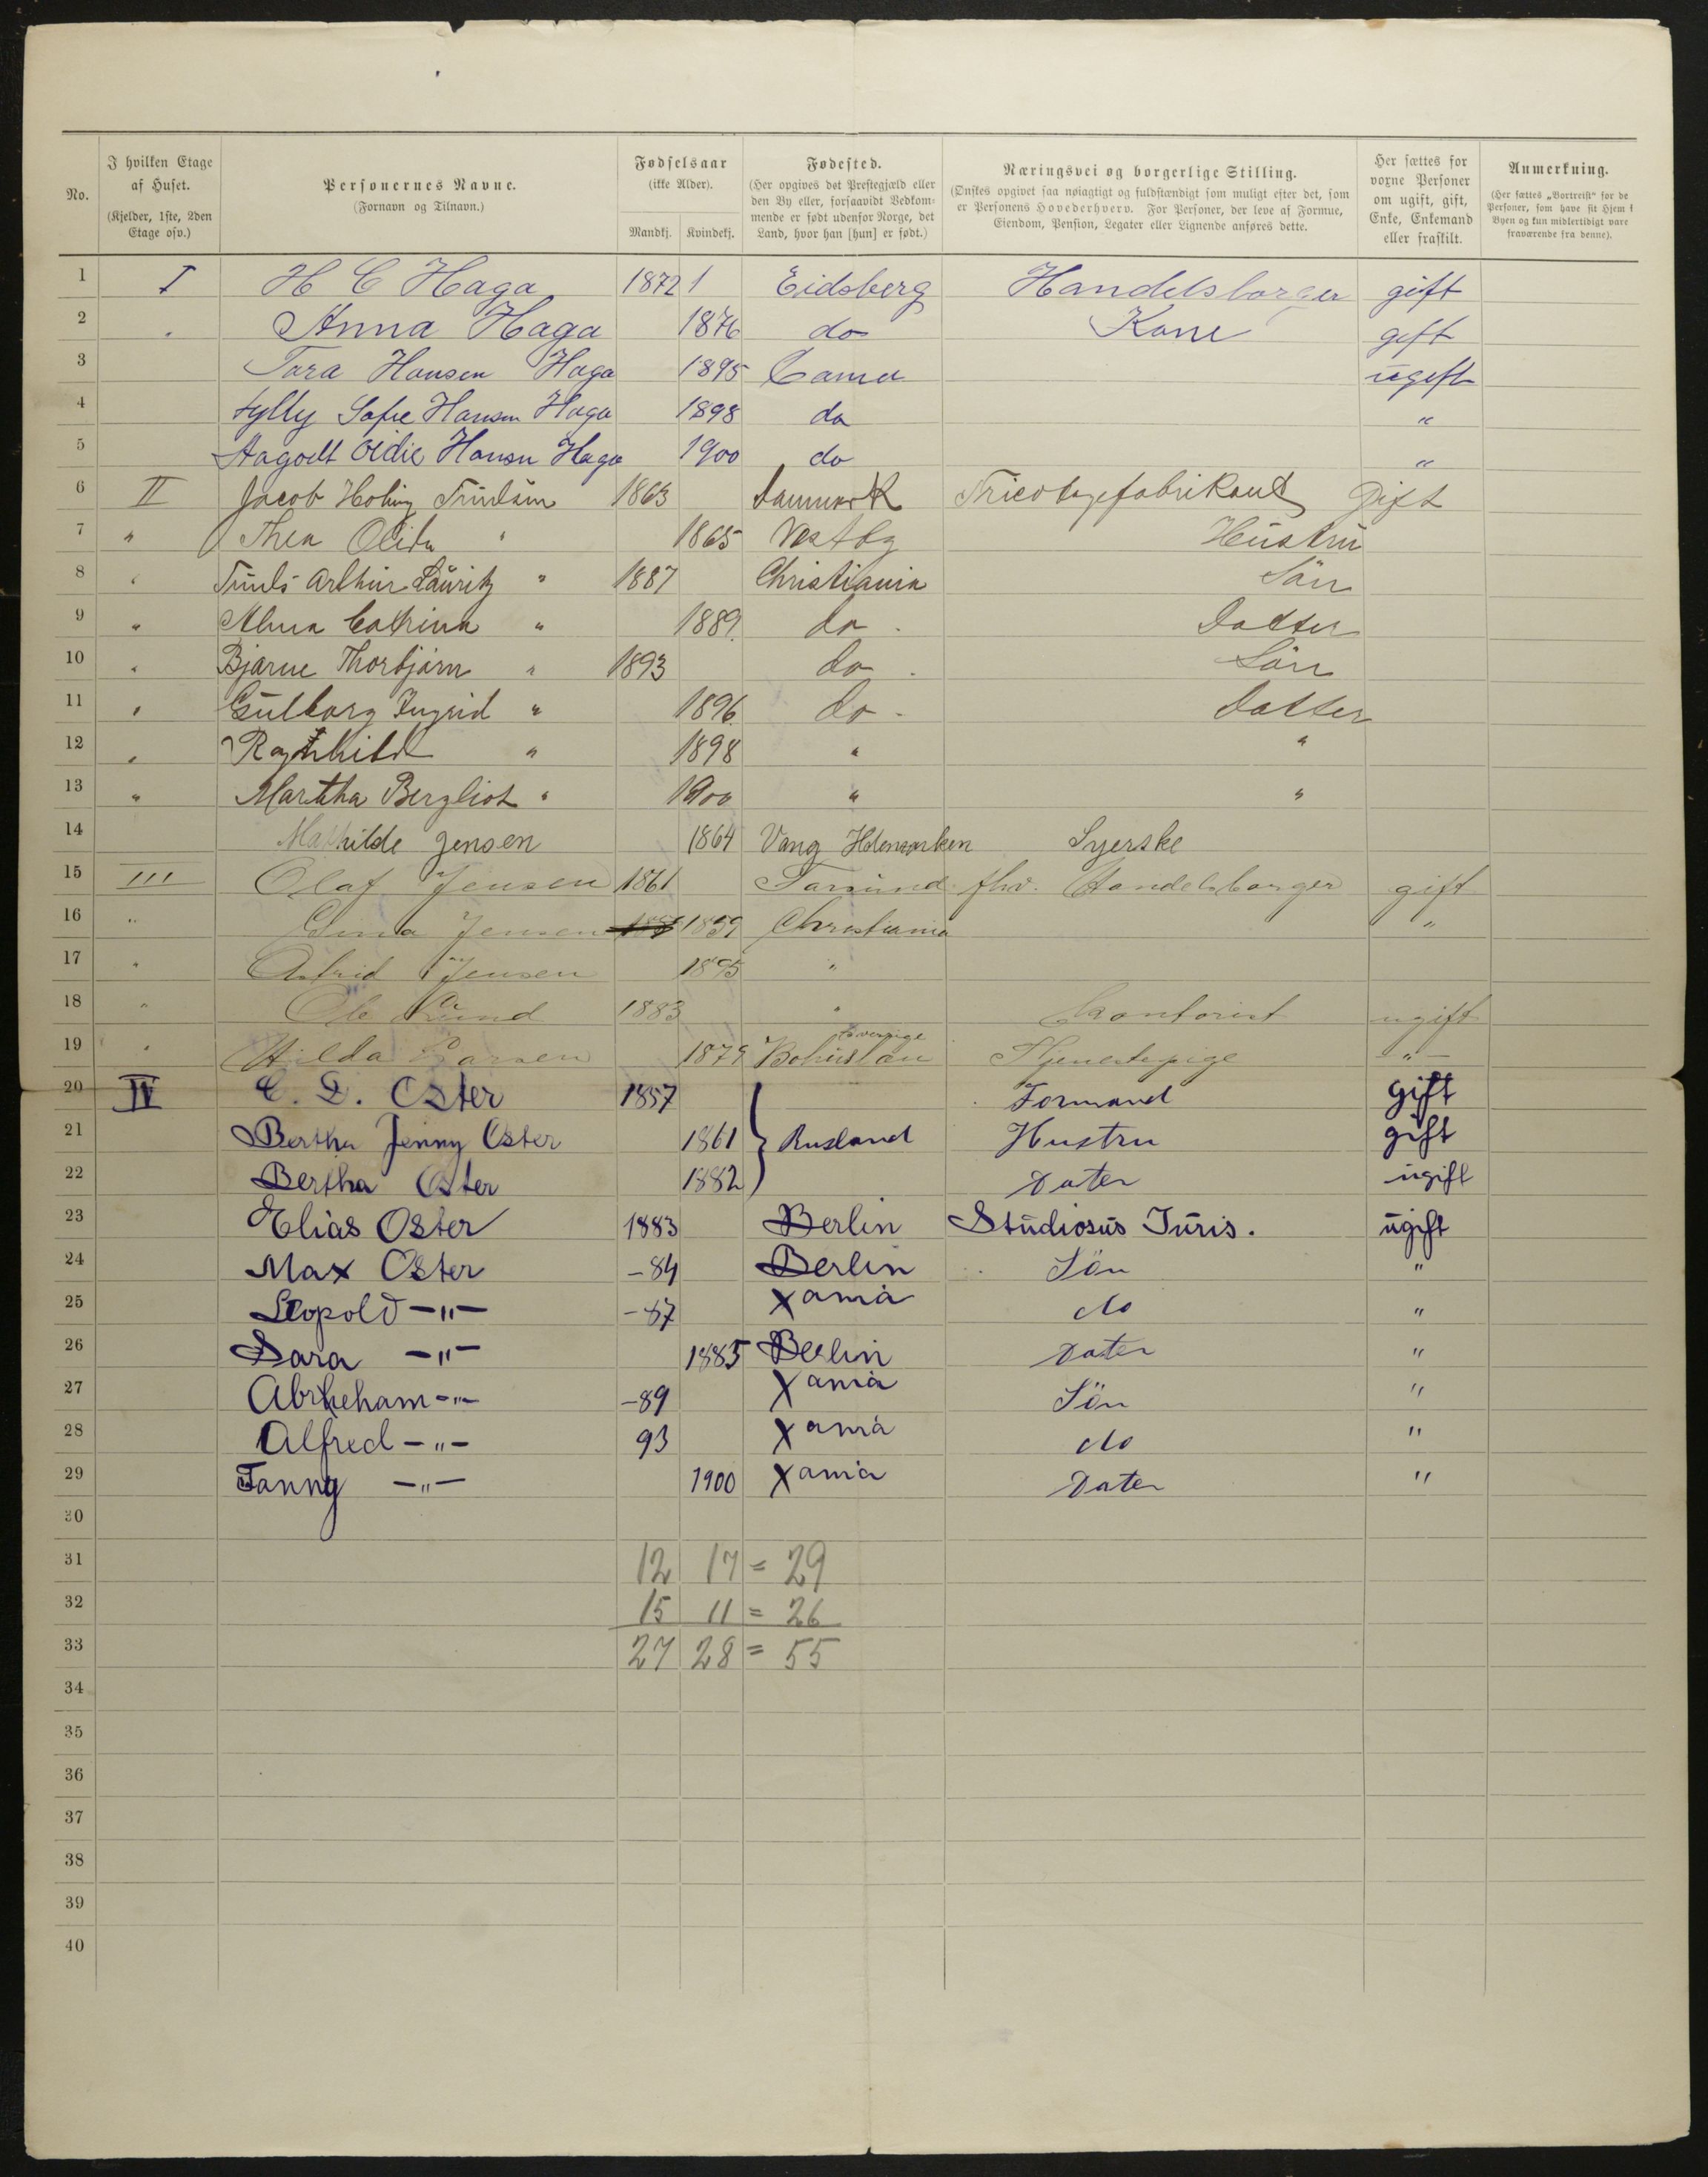 No.
I hvilken Etage af Huset. (Kjelder, 1ste, 2den Etage osv.)
Personernes Navne. (Fornavn og Tilnavn.)
Fødselsaar (ikke Alder). Mandkj. Kvindekj.
Fødested. (Her opgives det Prestegjæld eller den By eller, forsaavidt Vedkommende er født udenfor Norge, det Land, hvor han [hun] er født.)
Næringsvei og borgerlige Stilling. (Ønskes opgivet saa nøiagtigt og fuldstændigt som muligt efter det, som er Personens Hovederhverv. For Personer, der leve af Formue, Eiendom, Pension, Legater eller Lignende anføres dette.
Her sættes for voxne Personer om ugift, gift, Enke, Enkemand eller fraskilt.
Anmerkning. (Her sættes „Bortreist“ for de Personer, som have sit Hjem i Byen og kun midlertidigt vare fraværende fra denne).
1 I H C Haga 1872 1 Eidsberg Handelsborger gift
2 Anna Haga 1876 do Kone gift
3 Tora Hansen Haga 1895 ugift
4 Sofie Hansen Haga 1898 do "
5 Hansen Haga 1900 do "
6 II Jacob 1863 Danmark Tricotagefabrikant Gift
7 " Thea Olida " 1865 Vestby Hustru
8 " Truls Arthur Lauritz " 1887 Christiania Sön
9 " Alma Catrina " 1889. do. Datter
10 " Bjarne Thorbjörn " 1893 do. Sön
11 " Gulborg Ingrid " 1896. do. Datter
12 " Ragnhild " 1898 " "
13 " Martha Bergliot " 1900 " "
14 Mathilde Jensen 1864 Vang Syerske
15 III Olaf Jensen 1861 fhv. Handelsborger gift
16 " Jensen 1859 Christiania "
17 " Astrid Jensen 1895 "
18 " Ole Lund 1883 " Kontorist ugift
19 " Hilda Larsen 1879 Bohuslän Tjenestepige - " -
20 IV C. D. Oster 1857 Formand gift
21 Bertha Jenny Oster 1861 Rusland Hustru gift
22 Bertha Oster 1882 Dater ugift
23 Elias Oster 1883 Berlin Studiosus Juris. ugift
24 Max Oster -84 Berlin Sön "
25 Leopold -"- -87 Xania do "
26 Sara -"- 1885 Berlin Dater "
27 Abrheham -"- -89 Xania Sön "
28 Alfred -"- 93 Xania do "
29 Fanny -"- 1900 Xania Dater "
30
31 12 17 = 29
32 15 11 = 26
33 27 28 = 55
34
35
36
37
38
39
40